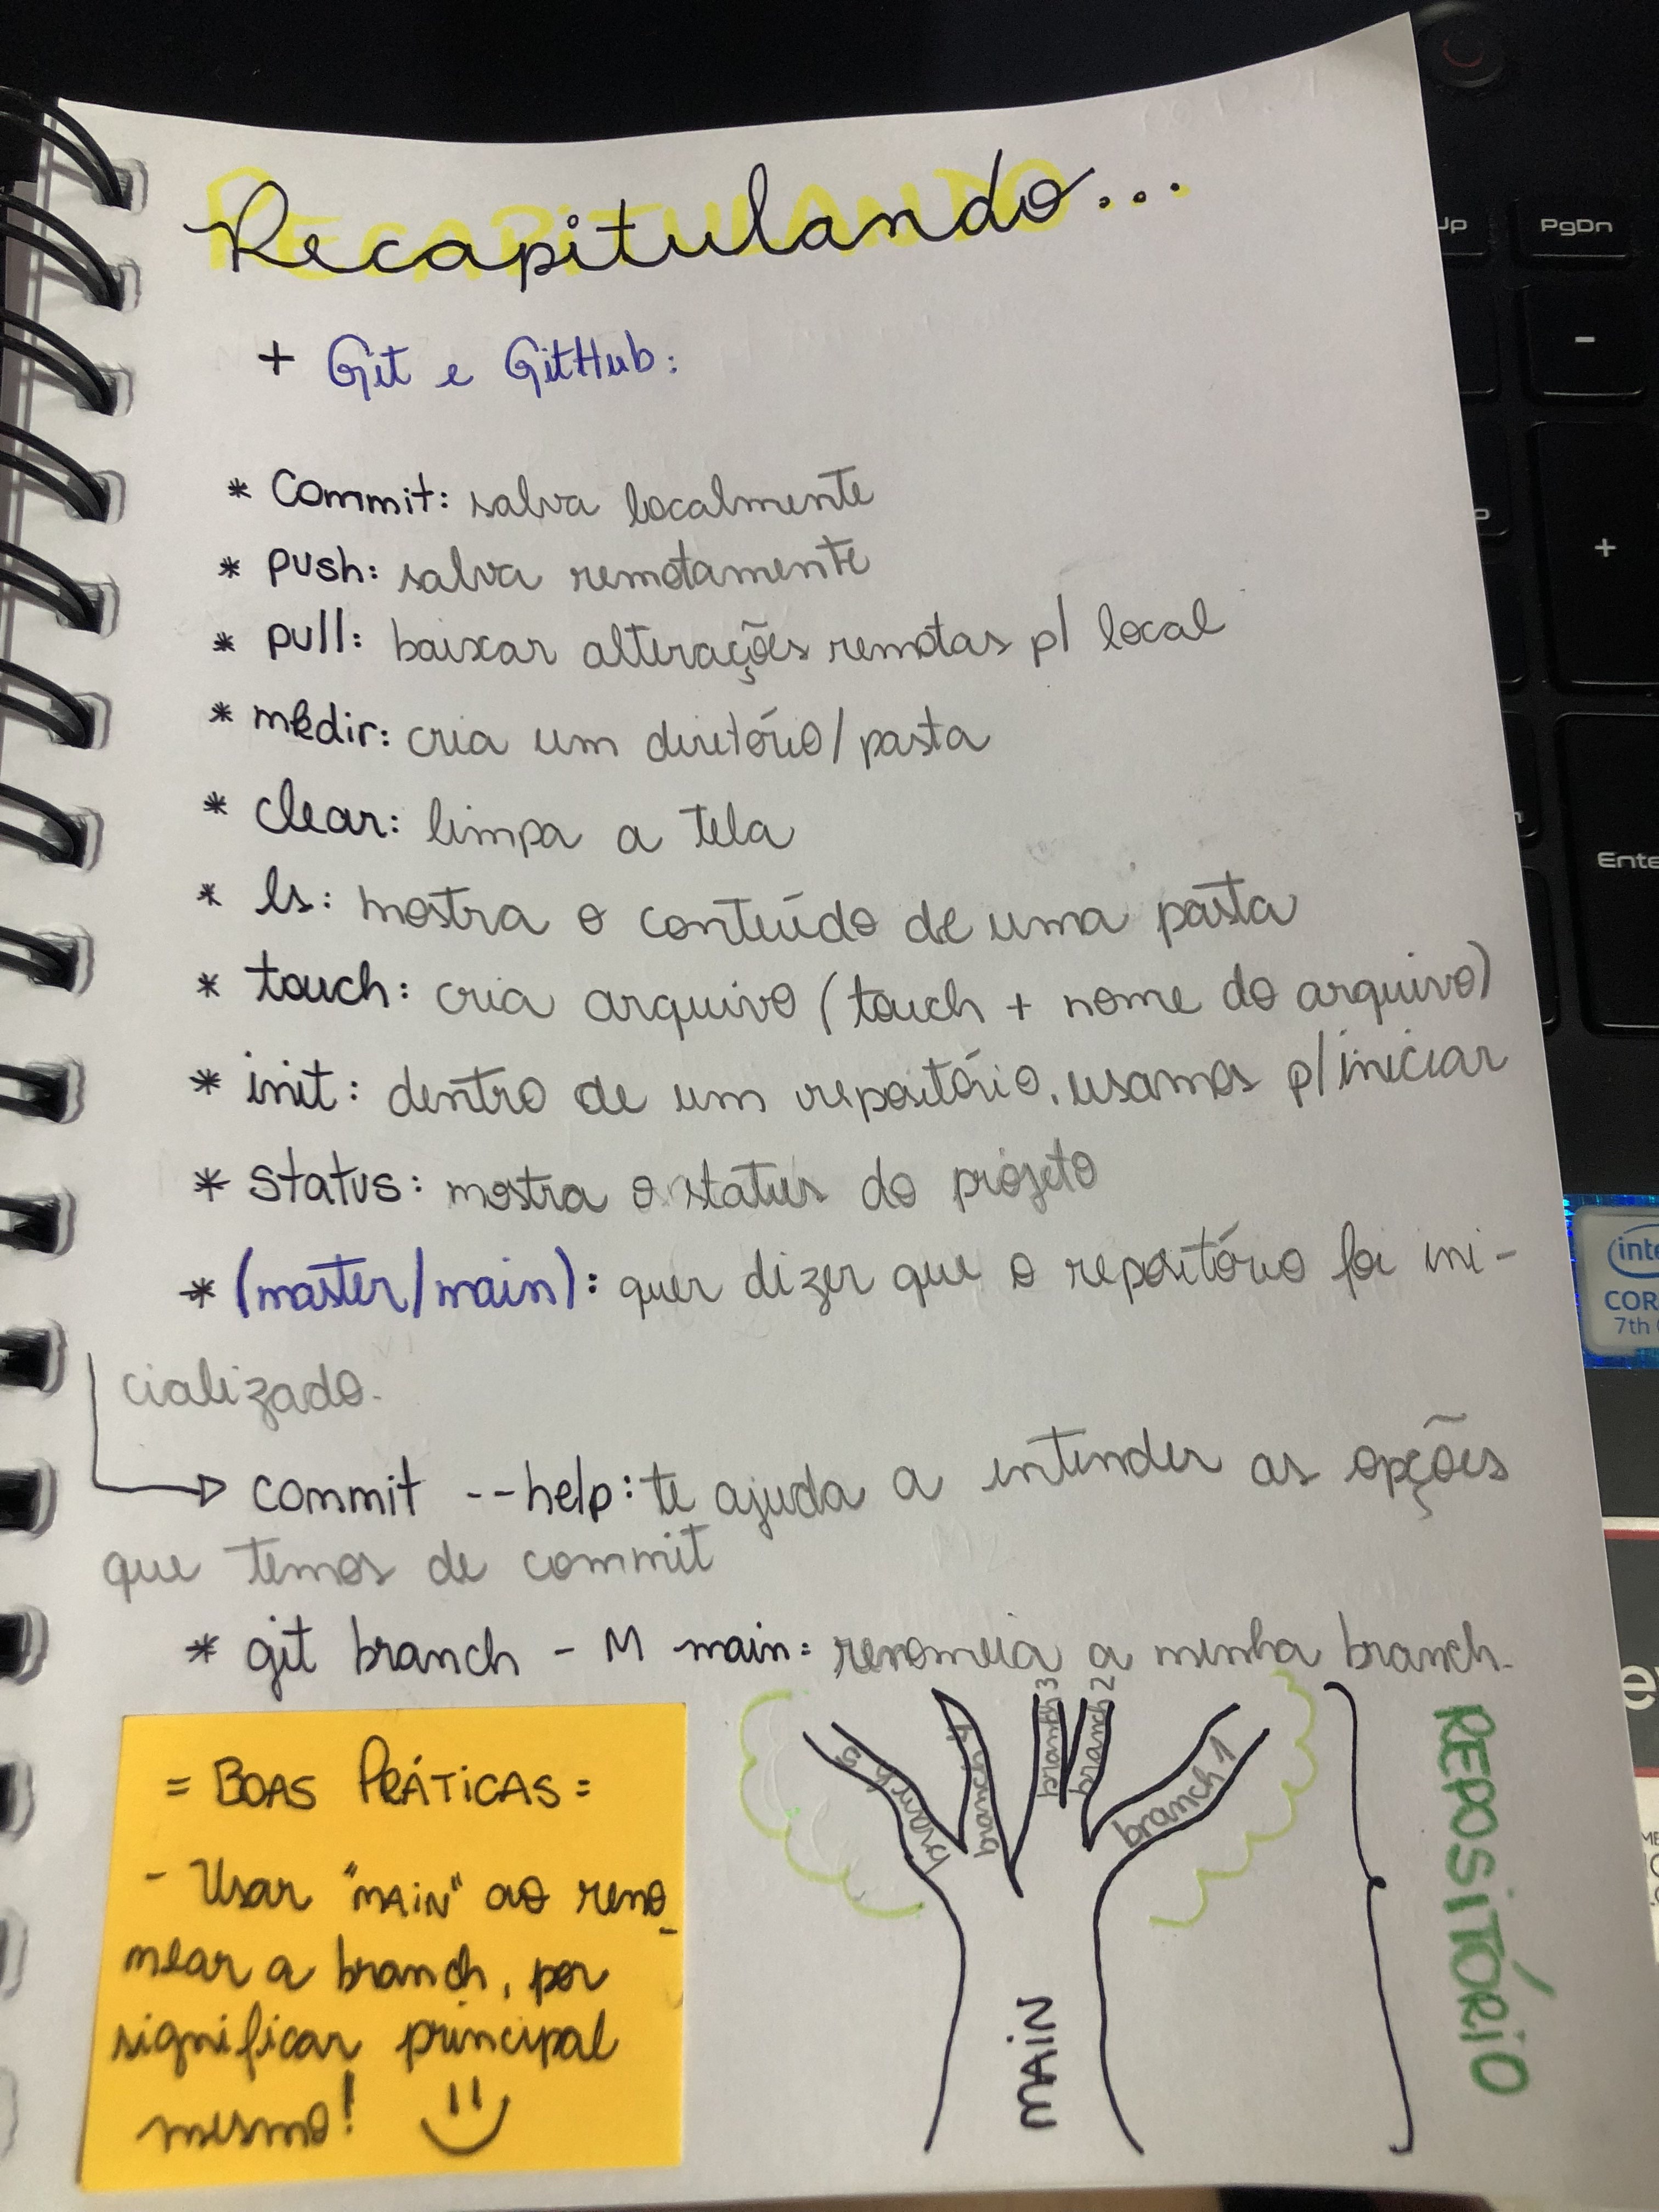 Recapitulando...
+ Git e GitHub:
* Commit: salva localmente
* push: salva remotamente
* pull: baixar alterações remotas p/ local
* mkdir: cria um diretório/pasta
* clear: limpa a tela
* ls: mostra o conteúdo de uma pasta
* touch: cria arquivo (touch + nome do arquivo)
* init: dentro de um repositório, usamos p/ iniciar
* status: mostra o status do projeto
* (master/main): quer dizer que o repositório foi ini-
cializado.
commit --help: te ajuda a entender as opções
que temos de commit
* git branch - M main: renomeia a minha branch.
= BOAS PRÁTICAS =
- Usar "MAIN" ao reno-
mear a branch, por
significar principal
mesmo!
branch 5
branch 4
branch 3
branch 2
branch 1
MAIN
REPOSITÓRIO
PgDn
-
+
7th